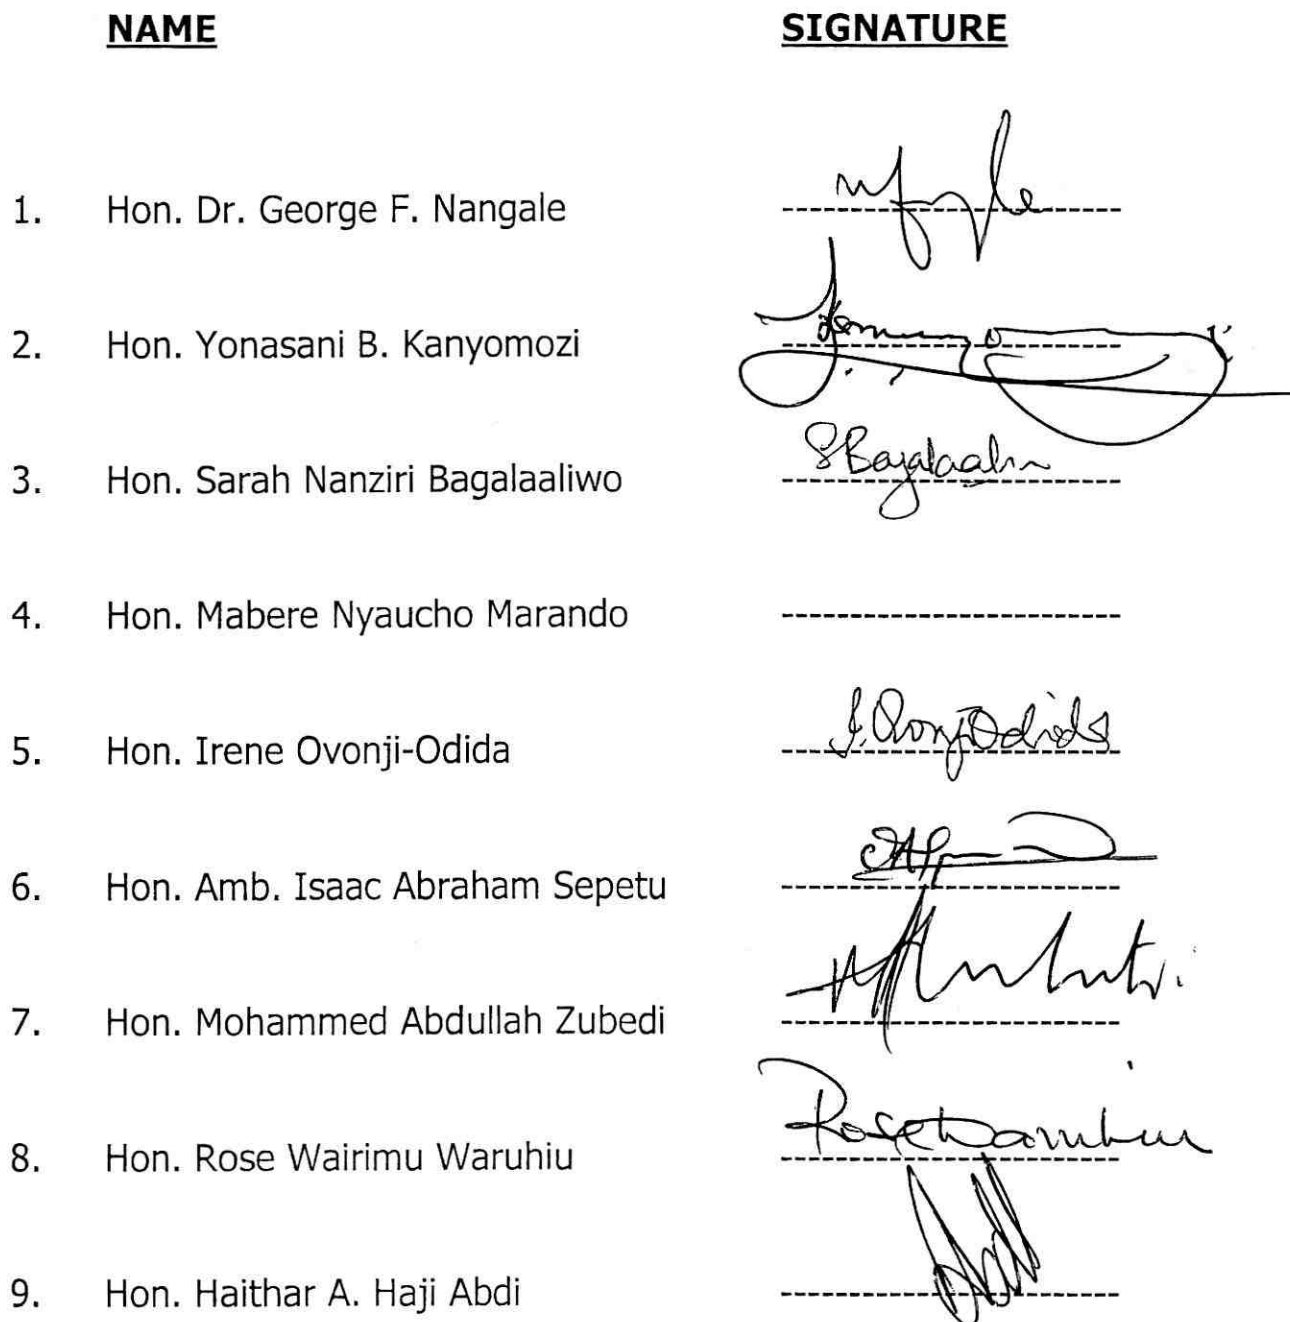 NAME SIGNATURE
1. Hon. Dr. George F. Nangale
2. Hon. Yonasani B. Kanyomozi
3. Hon. Sarah Nanziri Bagalaaliwo
4. Hon. Mabere Nyaucho Marando
5. Hon. Irene Ovonji-Odida I. OvonjiOdida
6. Hon. Amb. Isaac Abraham Sepetu
7. Hon. Mohammed Abdullah Zubedi
8. Hon. Rose Wairimu Waruhiu Rose Waruhiu
9. Hon. Haithar A. Haji Abdi